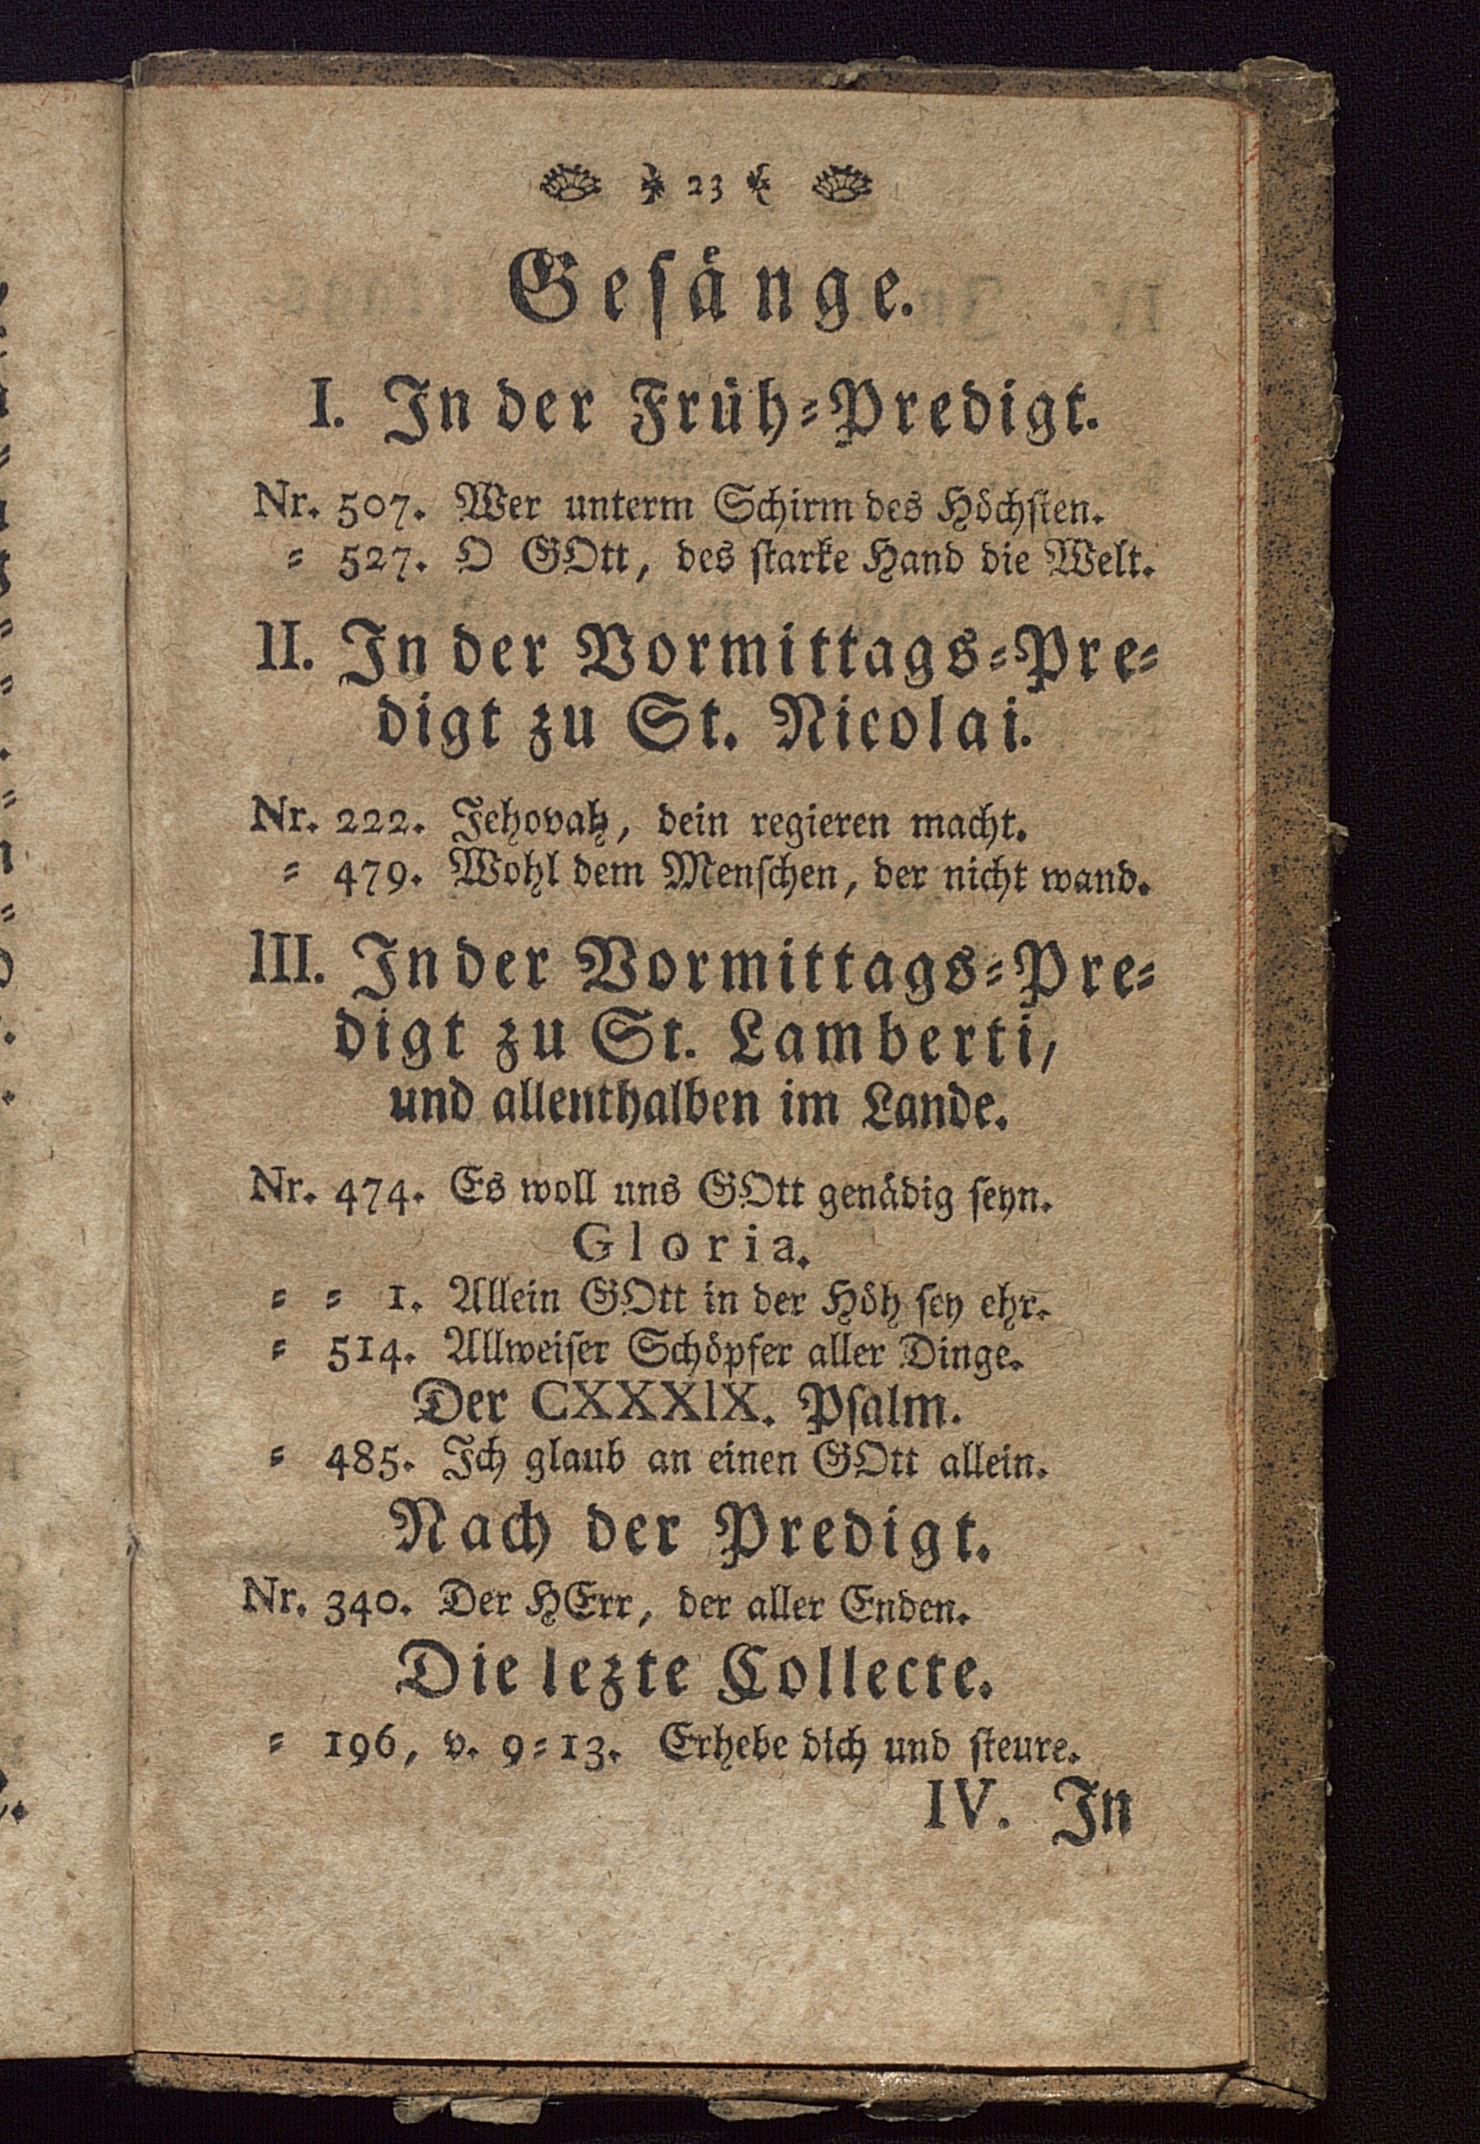 23
Gesänge.
I. In der Früh=Predigt.
Nr. 507. Wer unterm Schirm des Höchsten.
= 527. O GOtt, des starke Hand die Welt.
II. In der Vormittags=Pre=
digt zu St. Nicolai.
Nr. 222. Jehovah, dein regieren macht.
= 479. Wohl dem Menschen, der nicht wand.
III. In der Vormittags=Pre=
digt zu St. Lamberti,
und allenthalben im Lande.
Nr. 474. Es woll uns GOtt genädig seyn.
Gloria.
= = 1. Allein GOtt in der Höh sey ehr.
= 514. Allweiser Schöpfer aller Dinge.
Der CXXXIX. Psalm.
= 485. Ich glaub an einen GOtt allein.
Nach der Predigt.
Nr. 340. Der HErr, der aller Enden.
Die lezte Collecte.
= 196, v. 9=13. Erhebe dich und steure.
IV. In